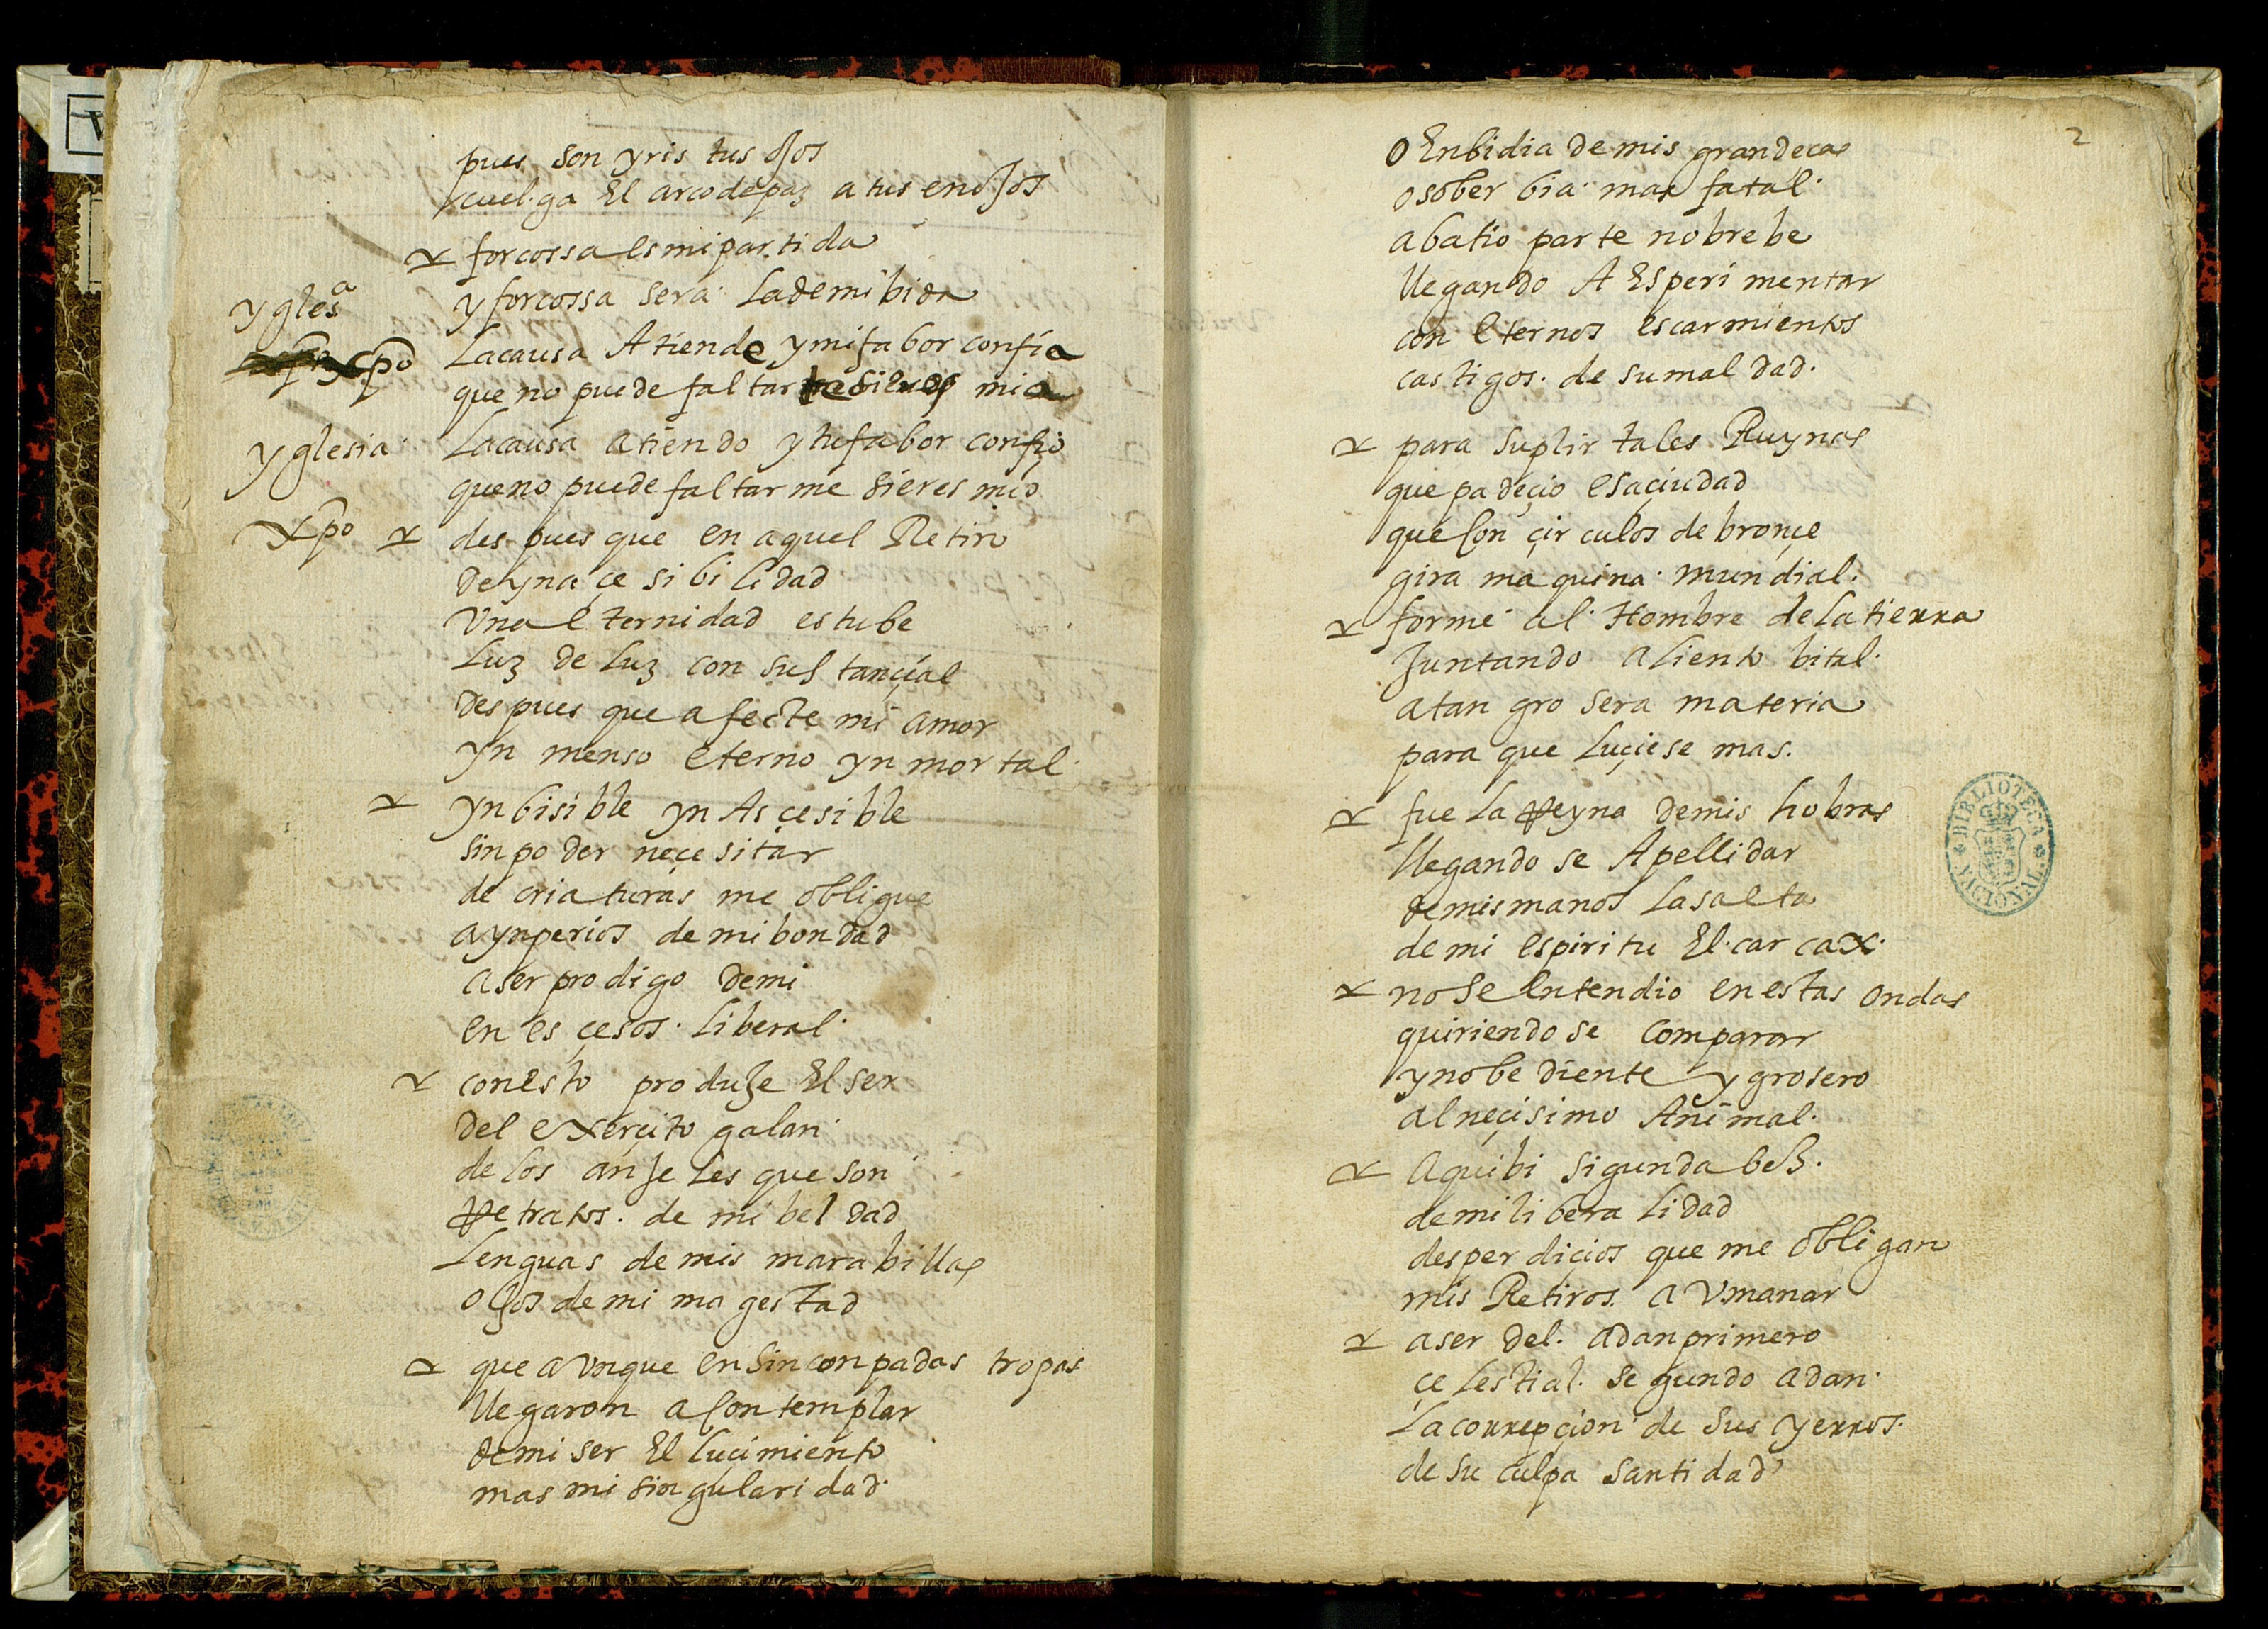 pues son yris tus ojos
cuel.ga El arco de paz a tus enojos
forcossa es mi partida
yglesa y forcossa sera la de mi bida
xpo La causa Atiende y mi fabor confia
que no puede faltar mia
yglesia La causa atiendo y tu fabor confio
que no puede faltarme si eres mio
xpo des pues que en aquel Retiro
de yna çe si bi lidad
Una eternidad estube
Luz de Luz con sustançial
des pues que afecte mi amor
yn menso eterno yn mortal
yn bisible yn As çesible
sin po der neçe sitar
de criaturas me obligue
a ynperios de mi bondad
a ser pro digo de mi
en es çesos. liberal.
con esto produje El ser
del exerçito galan
de los anjeles que son
Retratos. de mi bel dad
Lenguas de mis marabillas
ojos de mi magestad
que aunque en sinconpadas tropas
llegaron a contemplar
de mi ser El luçimiento
mas mi singularidad.
2
o Enbidia de mis grandecas
o sober bia mas fatal.
abatio parte nobrebe
llegando A Esperi mentar
con eternos escarmientos
castigos. de su mal dad.
para suplir tales Ruynas
que padeçio esa çiudad
que con çir culos de bronçe
gira maquina mundial.
forme al Hombre de la tierra
Juntando aliento bital.
a tan gro sera materia
para que luçiese mas.
fue la Reyna de mis hobras
llegando se Apellidar
de mis manos la saeta
de mi espiritu El. carcax.
no se entendio en estas ondas
quiriendo se comparar
ynobe diente y grosero
al neçisimo Animal.
aqui bi sigunda bez.
de mi libera lidad
desper diçios que me obligan
mis Retiros. a Umanar
a ser del. adan primero
çe lestial. se gundo adan.
La correpçion de sus yerros.
de su culpa santidad
BIBLIOTECA NACIONAL